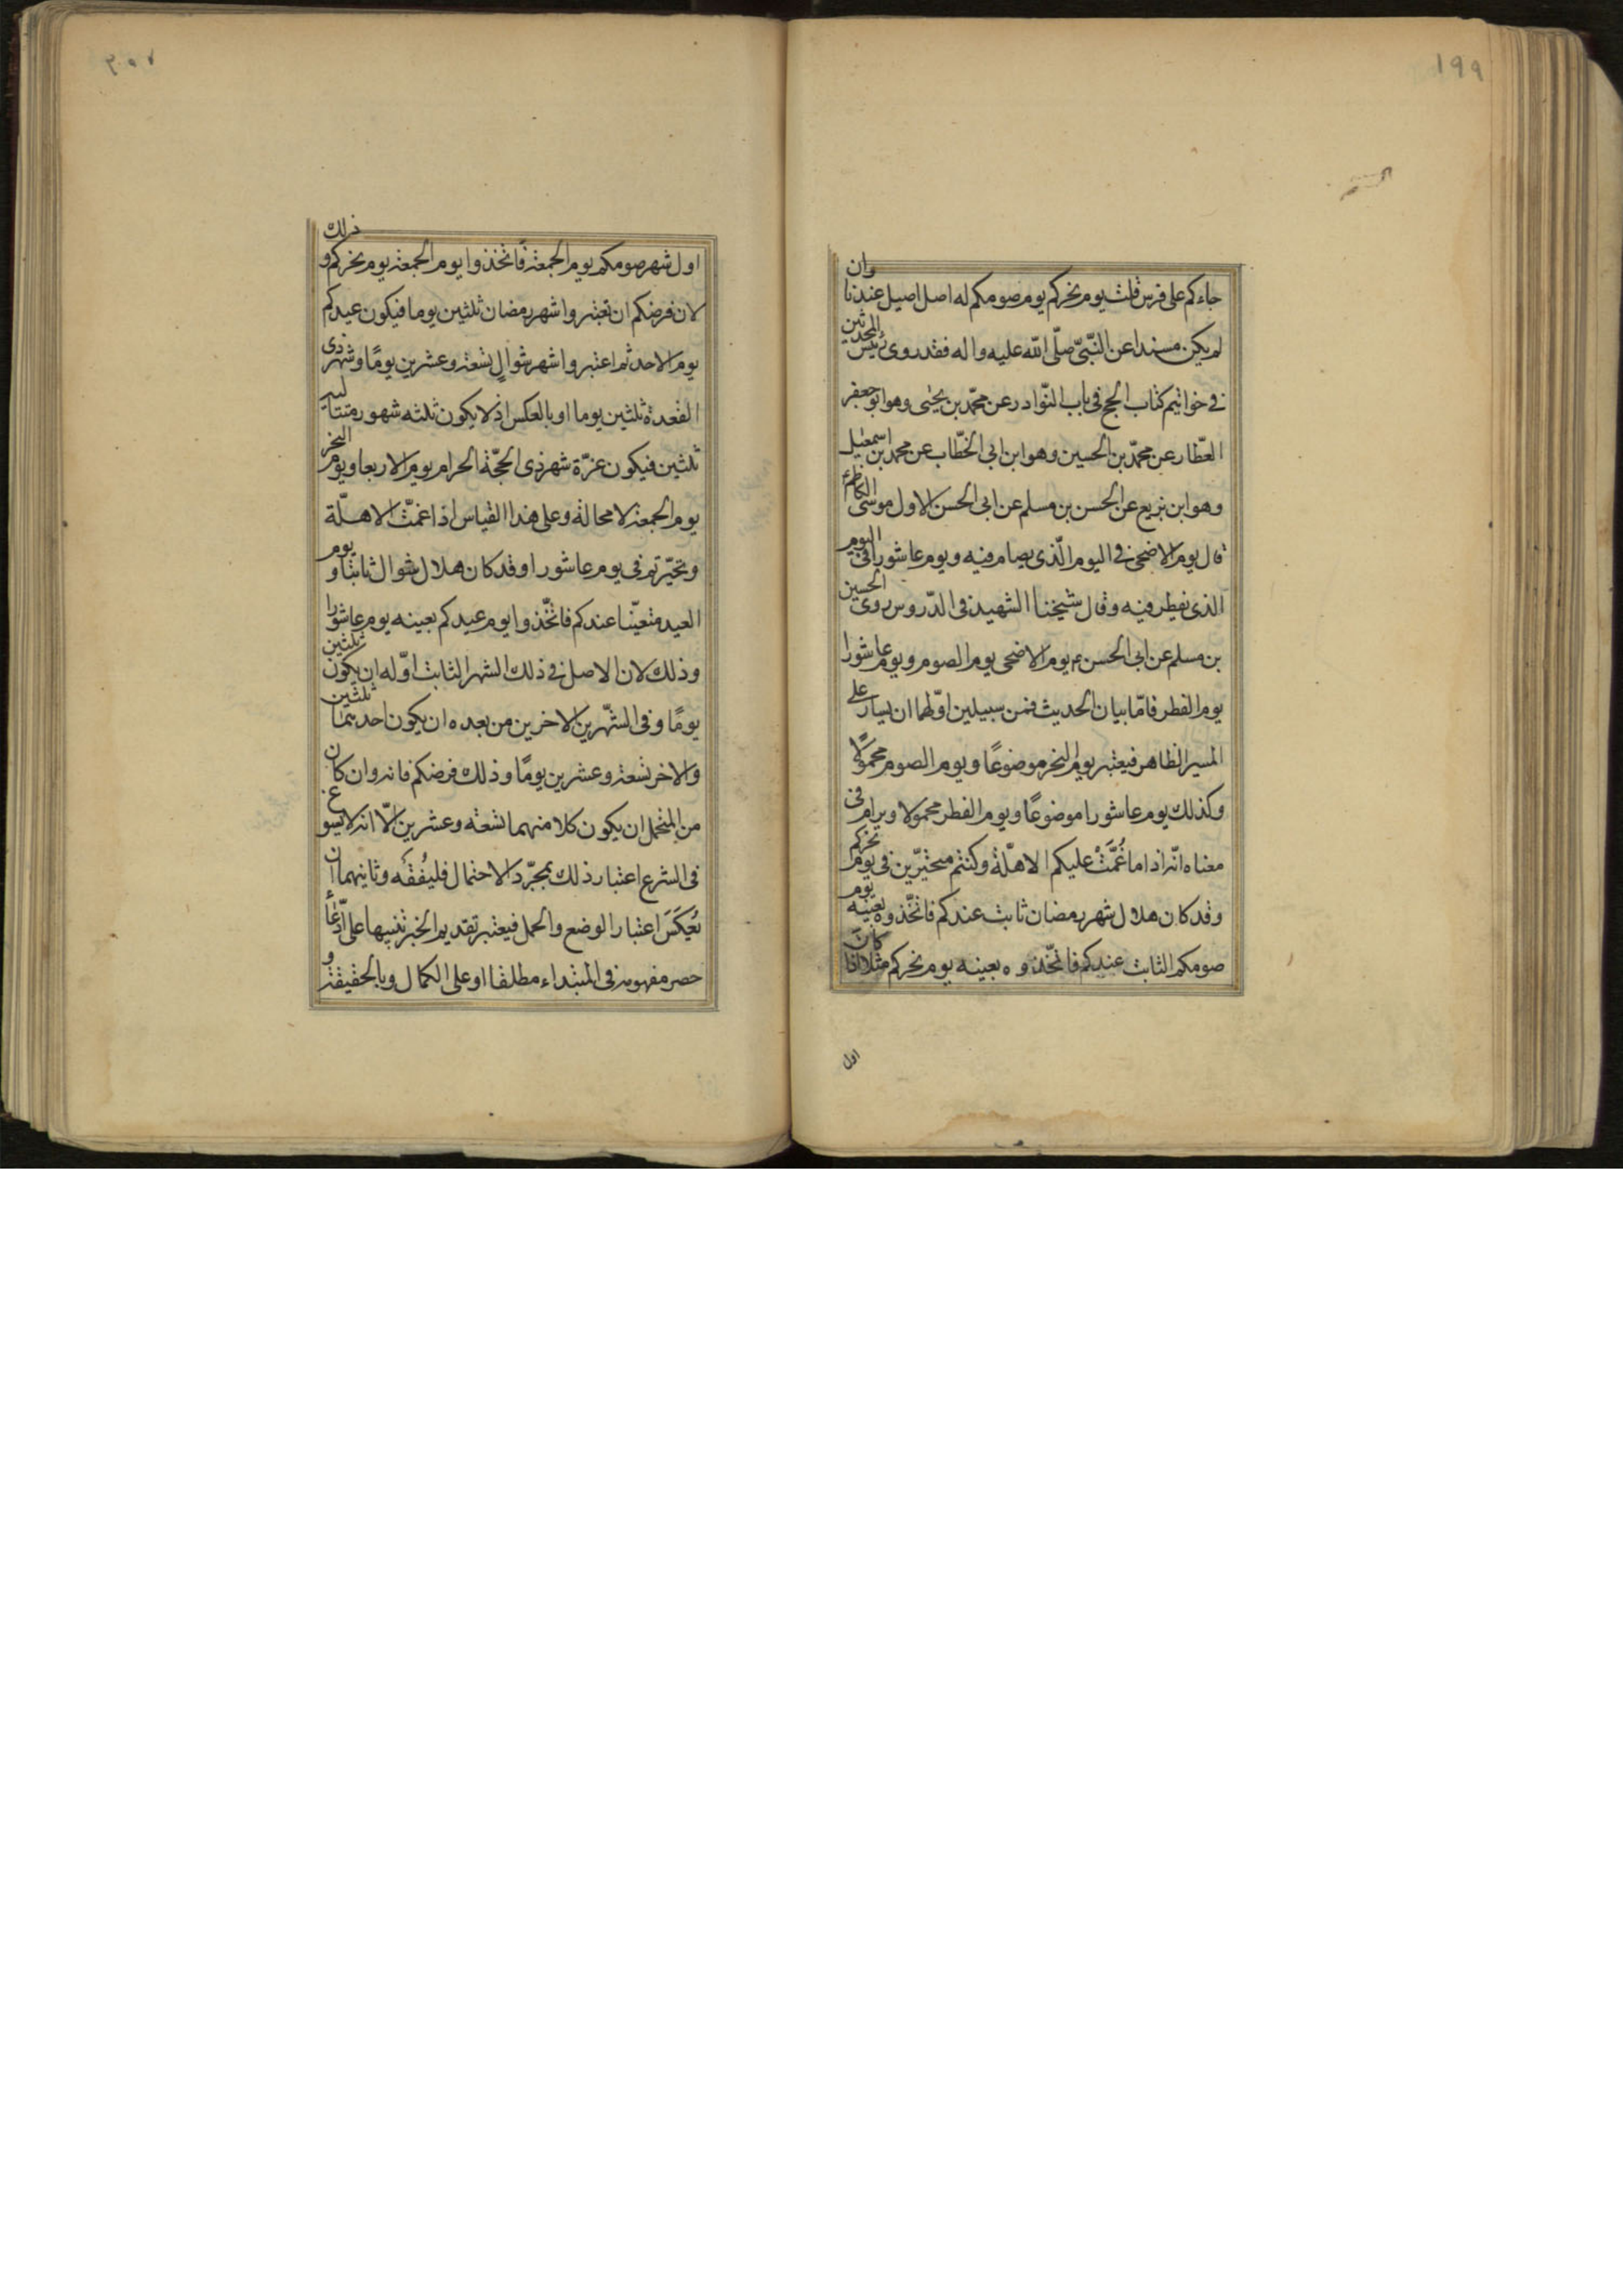 ١٩٩
جاءكم على فرس قلت يوم نحركم يوم صومكم له اصل اصيل عندنا وان
لم يكن مسندا عن النبىّ صلّى الله عليه واله فقد روى رئيس المحدثين
فى خواتيم كتاب الحج فى باب النّوادر عن محمّد بن يحيى وهو ابو جعفر
العطّار عن محمّد بن الحسين وهو ابن ابى الخطّاب عن محمد بن اسمعيل
وهو ابن بزيع عن الحسن بن مسلم عن ابى الحسن الاول موسى الكاظم ع
قال يوم الاضحى فى اليوم الّذى يصام فيه ويوم عاشورا فى اليوم
الذى يفطر فيه وقال شيخنا الشهيد فى الدّروس روى الحسين
بن مسلم عن ابى الحسن ع يوم الاضحى يوم الصوم ويوم عاشورا
يوم الفطر فامّا بيان الحديث فمن سبيلين اوّلهما ان يسار على
المسير الظاهر فيعتبر يوم النحر موضوعًا ويوم الصوم محمولًا
وكذلك يوم عاشورا موضوعًا ويوم الفطر محمولا ويرام فى
معناه انّه اذا ما غُمَّتْ عليكم الاهلّة وكنتم متحيّرين فى يوم نحركم
وقد كان هلال شهر رمضان ثابت عندكم فاتخّذوه بعينه يوم
صومكم الثابت عندكم فاتخّذوه بعينه يوم نحركم مثلا اذا كان
اول
٢٠٠
اول شهر صومكم يوم الجمعة فاتخذوا يوم الجمعة يوم نحركم و ذلك
لان فرضكم ان تعتبروا شهر رمضان ثلثين يوما فيكون عيدكم
يوم الاحد ثم اعتبروا شهر شوالٍ تسعة وعشرين يومًا وشهر ذى
القعدة ثلثين يوما او بالعكس اذ لا يكون ثلثه شهور متتالية
ثلثين فيكون غرّة شهر ذى الحجّة الحرام يوم الاربعا ويوم النحر
يوم الجمعة لا محالة وعلى هذا القياس اذا غمّت الاهلّة
وتحيّرتم فى يوم عاشورا وقد كان هلال شوال ثابتا و يوم
العيد متعيّنا عندكم فاتخّذوا يوم عيدكم بعينه يوم عاشورا
وذلك لان الاصل فى ذلك الشهر الثابت اوّله ان يكون ثلثين
يومًا وفى الشّهرين الاخرين من بعده ان يكون احديهما ثلثين
والاخر تسعة وعشرين يومًا وذلك فرضكم فانه وان كان
من المتحمل ان يكون كلا منهما تسعة وعشرين الّا انه لا يسوغ
فى الشرع اعتبار ذلك بمجرّد الاحتمال فليُفْقَه وثانيهما ان
يُعكَسَ اعتبار الوضع والحمل فيعتبر تقديم الخبر تنبيها على ادّعاء
حصر مفهومه فى المبتداء مطلقا او على الكمال وبالحقيقة و